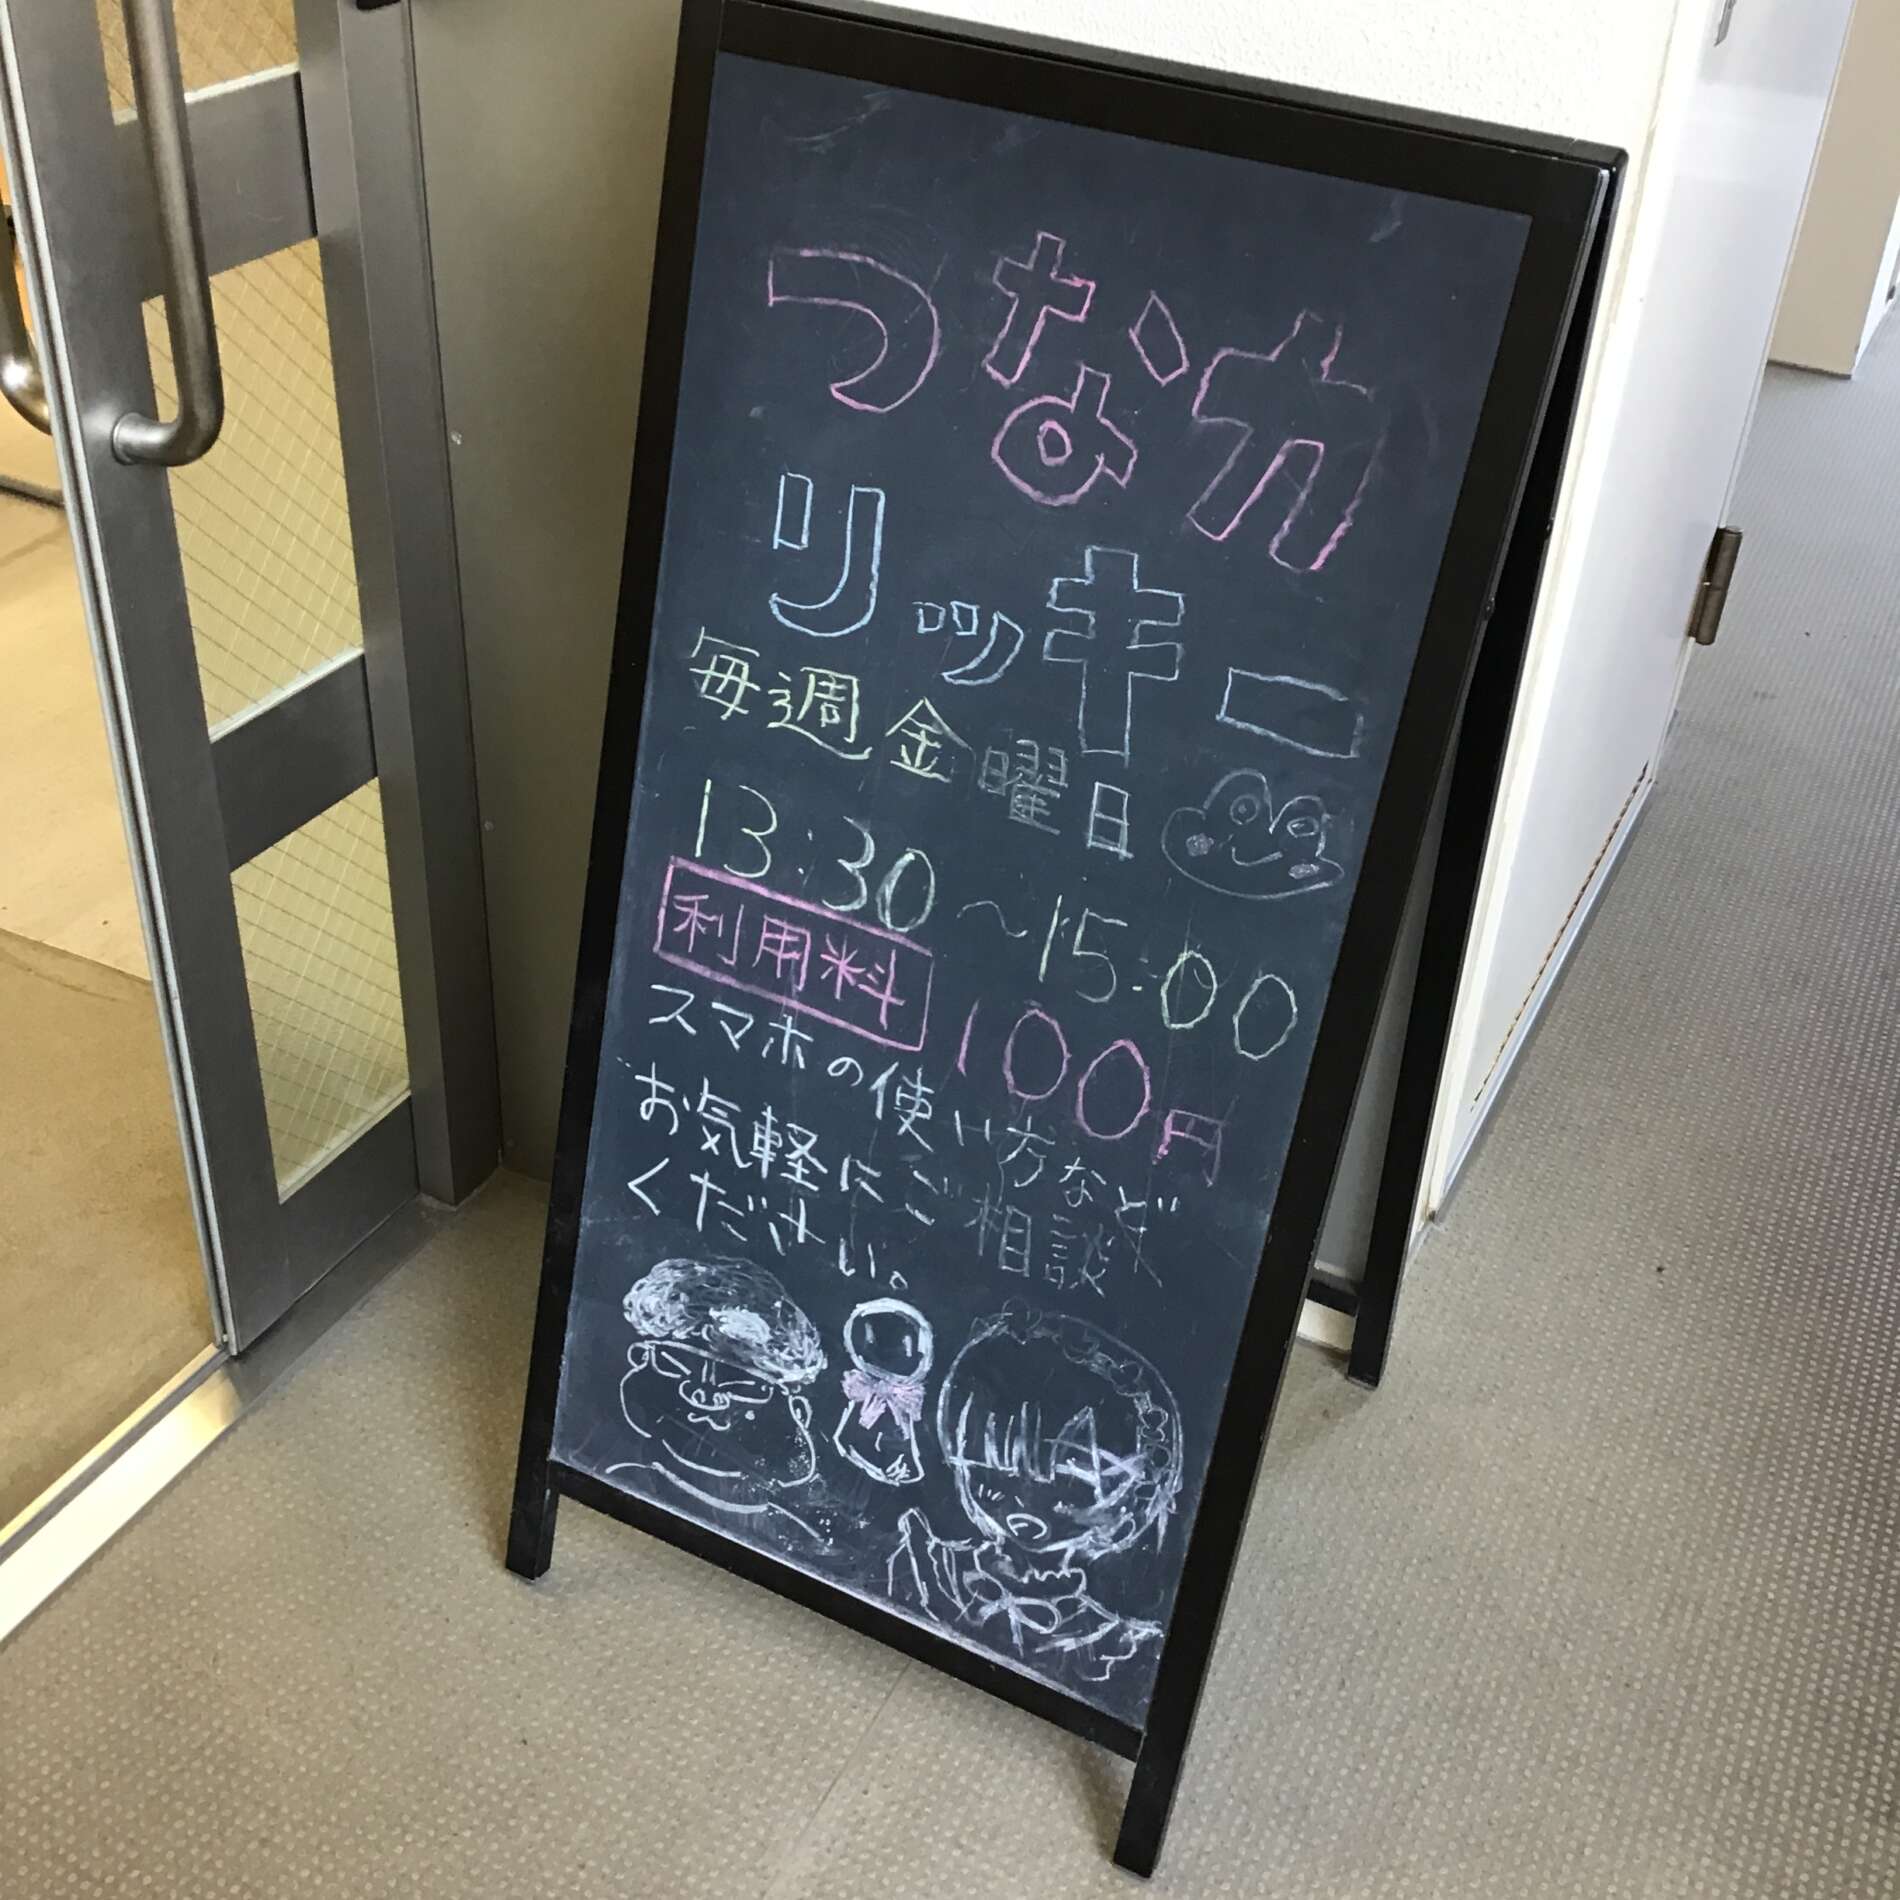 つなカ
リッキー
毎週金曜日
13:30～15:00
利用料 100円
スマホの使い方など
お気軽にご相談
ください。